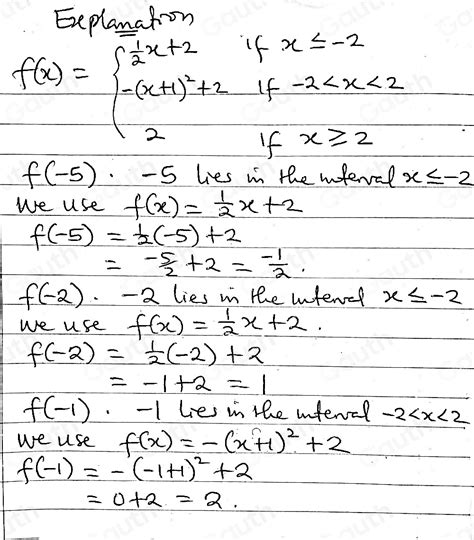 Explanation
f(x) = { ½x+2 if x ≤ -2
-(x+1)²+2 if -2<x<2
2 if x ≥ 2
f(-5). -5 lies in the interval x ≤ -2
We use f(x) = ½x+2
f(-5) = ½(-5)+2
= -5/2 + 2 = -1/2.
f(-2). -2 lies in the interval x ≤ -2
We use f(x) = ½x+2.
f(-2) = ½(-2)+2
= -1+2 = 1
f(-1). -1 lies in the interval -2<x<2
We use f(x) = -(x+1)²+2
f(-1) = -(-1+1)²+2
= 0+2 = 2.